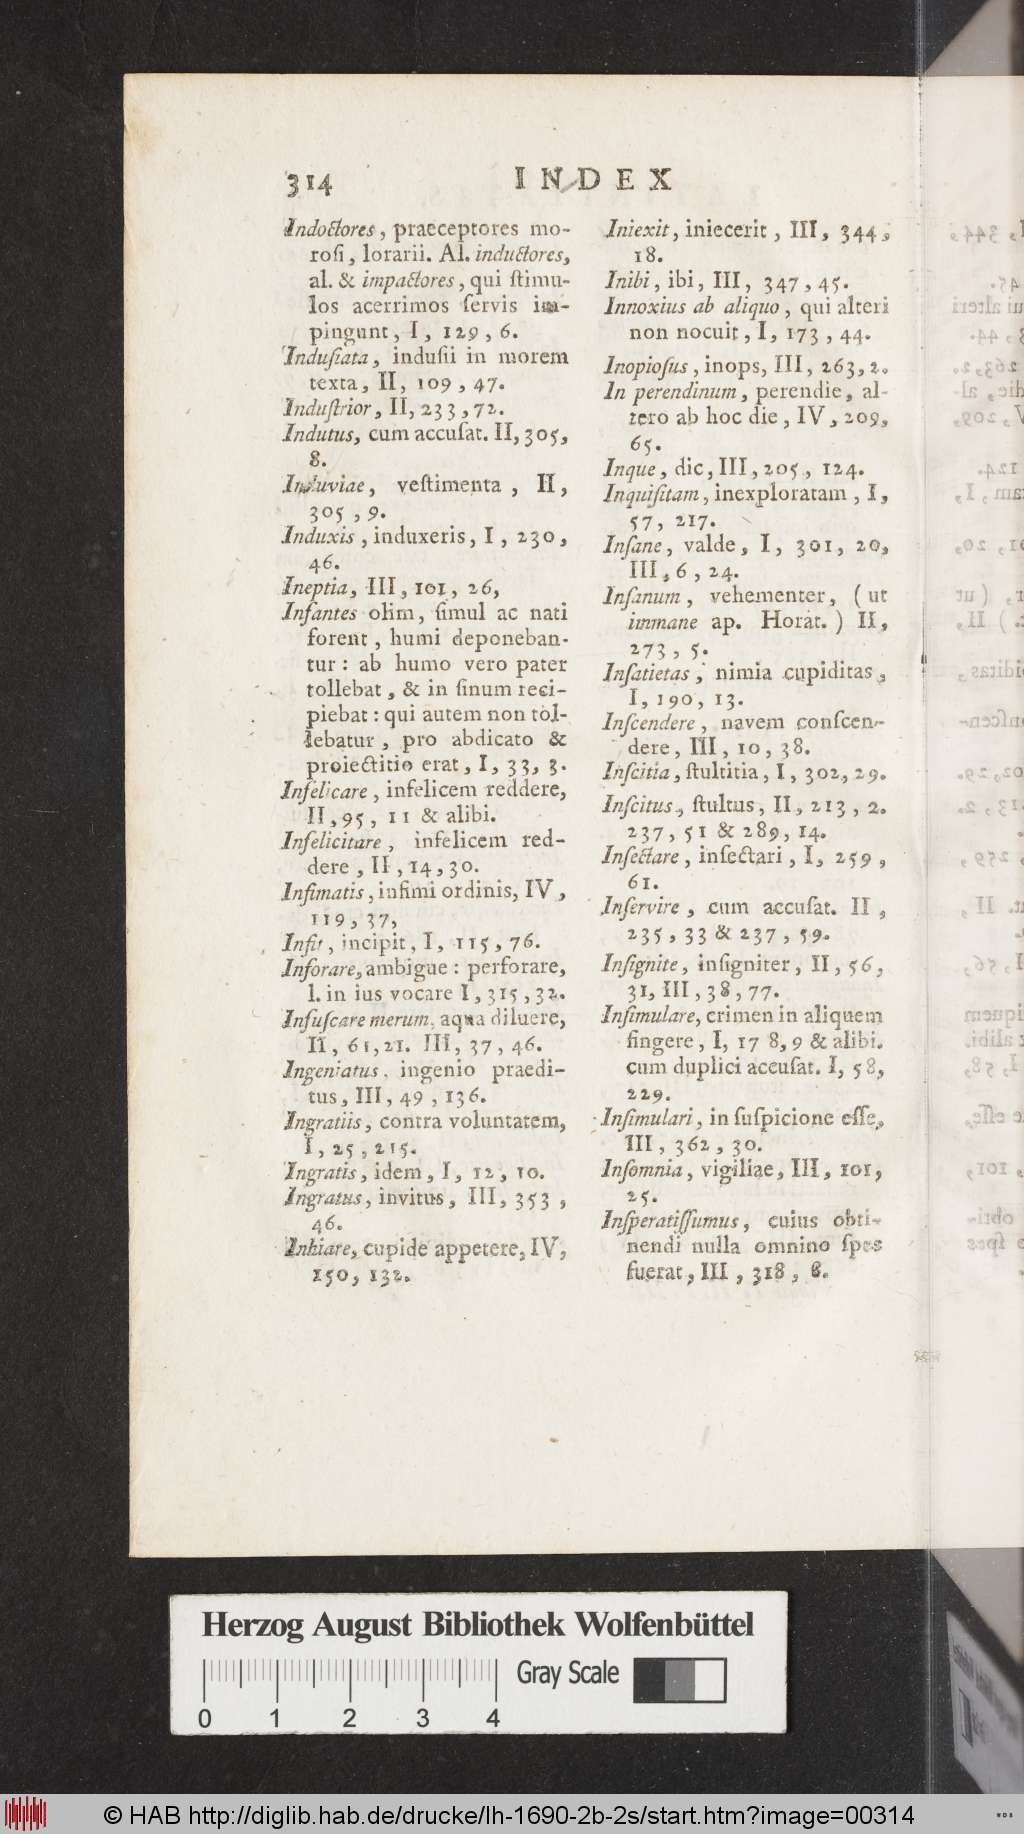 314 INDEX
Indoctores, praeceptores mo-
roſi, lorarii. Al. inductores,
al. & impactores, qui ſtimu-
los acerrimos ſervis im-
pingunt, I, 129, 6.
Induſiata, induſii in morem
texta, II, 109, 47.
Induſtrior, II, 233, 72.
Indutus, cum accuſat. II, 305,
8.
Induviae, veſtimenta, II,
305, 9.
Induxis, induxeris, I, 230,
46.
Ineptia, III, 101, 26,
Infantes olim, ſimul ac nati
forent, humi deponeban-
tur: ab humo vero pater
tollebat, & in ſinum reci-
piebat: qui autem non tol-
lebatur, pro abdicato &
proiectitio erat, I, 33, 3.
Infelicare, infelicem reddere,
II, 95, 11 & alibi.
Infelicitare, infelicem red-
dere, II, 14, 30.
Infimatis, infimi ordinis, IV,
119, 37,
Infit, incipit, I, 115, 76.
Inforare, ambigue: perforare,
l. in ius vocare I, 315, 32.
Infuſcare merum, aqua diluere,
II, 61, 21. III, 37, 46.
Ingeniatus, ingenio praedi-
tus, III, 49, 136.
Ingratiis, contra voluntatem,
I, 25, 215.
Ingratis, idem, I, 12, 10.
Ingratus, invitus, III, 353,
46.
Inhiare, cupide appetere, IV,
150, 132.
Iniexit, iniecerit, III, 344,
18.
Inibi, ibi, III, 347, 45.
Innoxius ab aliquo, qui alteri
non nocuit, I, 173, 44.
Inopioſus, inops, III, 263, 2.
In perendinum, perendie, al-
tero ab hoc die, IV, 209,
65.
Inque, dic, III, 205, 124.
Inquiſitam, inexploratam, I,
57, 217.
Inſane, valde, I, 301, 20,
III, 6, 24.
Inſanum, vehementer, (ut
immane ap. Horat.) II,
273, 5.
Inſatietas, nimia cupiditas,
I, 190, 13.
Inſcendere, navem conſcen-
dere, III, 10, 38.
Inſcitia, ſtultitia, I, 302, 29.
Inſcitus, ſtultus, II, 213, 2.
237, 51 & 289, 14.
Inſectare, inſectari, I, 259,
61.
Inſervire, cum accuſat. II,
235, 33 & 237, 59.
Inſignite, inſigniter, II, 56,
31, III, 38, 77.
Inſimulare, crimen in aliquem
fingere, I, 17 8, 9 & alibi.
cum duplici accuſat. I, 58,
229.
Inſimulari, in ſuſpicione eſſe,
III, 362, 30.
Inſomnia, vigiliae, III, 101,
25.
Inſperatiſſumus, cuius obti-
nendi nulla omnino ſpes
fuerat, III, 318, 8.
Herzog August Bibliothek Wolfenbüttel
Gray Scale
0 1 2 3 4
© HAB http://diglib.hab.de/drucke/lh-1690-2b-2s/start.htm?image=00314